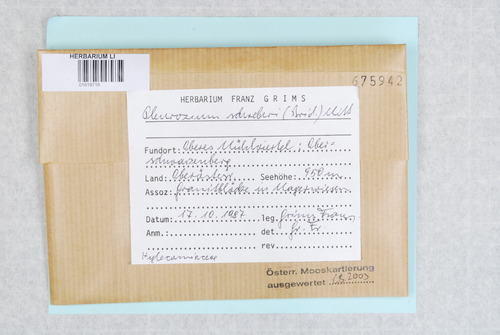 HERBARIUM LI
675942
HERBARIUM FRANZ GRIMS
Pleurozium schreberi (Brid.) Mitt
Fundort: Oberes Mühlviertel; Ober-
schwarzenberg
Land: Oberösterr. Seehöhe: 950m
Assoz: Granitblöcke in Magerwiesen
Datum: 17.10.1987 leg. Grims Franz
Anm. det. Gr. Fr.
rev.
Hylocomiaceae
Österr. Mooskartierung
ausgewertet 2003